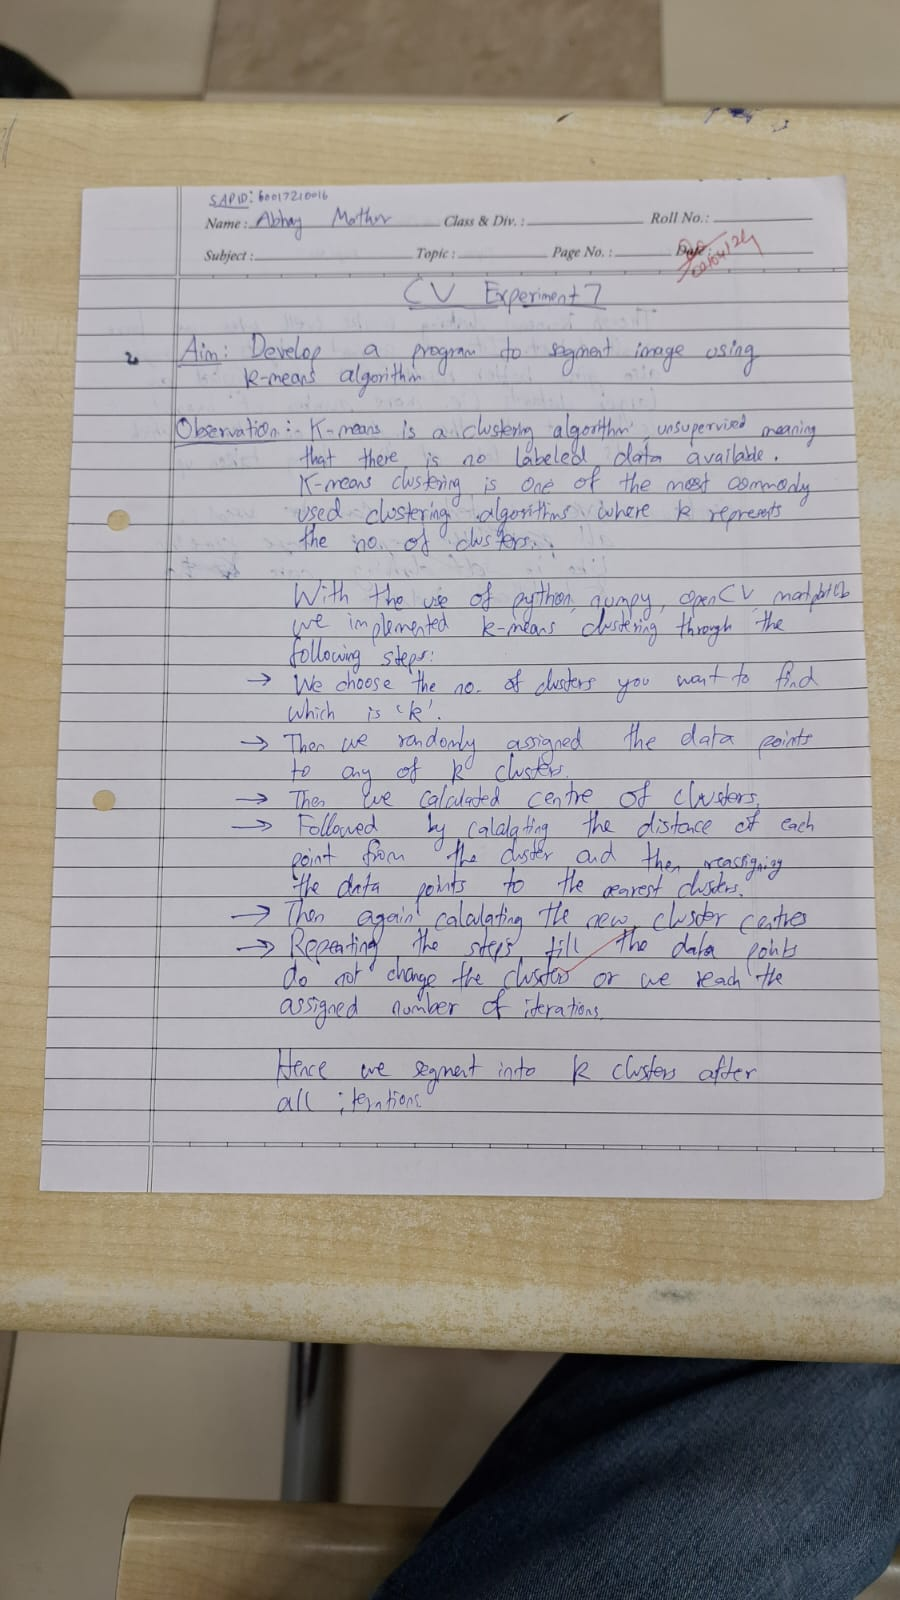 SAPID: 60017210016
Name: Abhay Mathur Class & Div.: Roll No.:
Subject: Topic: Page No.: Date:
CV Experiment 7
Aim: Develop a program to segment image using
k-means algorithm
Observation:- K-means is a clustering algorithm, unsupervised meaning
that there is no labeled data available.
K-means clustering is one of the most commonly
used clustering algorithms where k represents
the no. of clusters.
With the use of python, numpy, openCV, matplotlib
we implemented k-means clustering through the
following steps:
→ We choose the no. of clusters you want to find
which is 'k'.
→ Then we randomly assigned the data points
to any of k clusters.
→ Then we calculated centre of clusters.
→ Followed by calculating the distance of each
point from the cluster and then reassigning
the data points to the nearest clusters.
→ Then again calculating the new cluster centres
→ Repeating the steps till the data points
do not change the clusters or we reach the
assigned number of iterations.
Hence we segment into k clusters after
all iterations